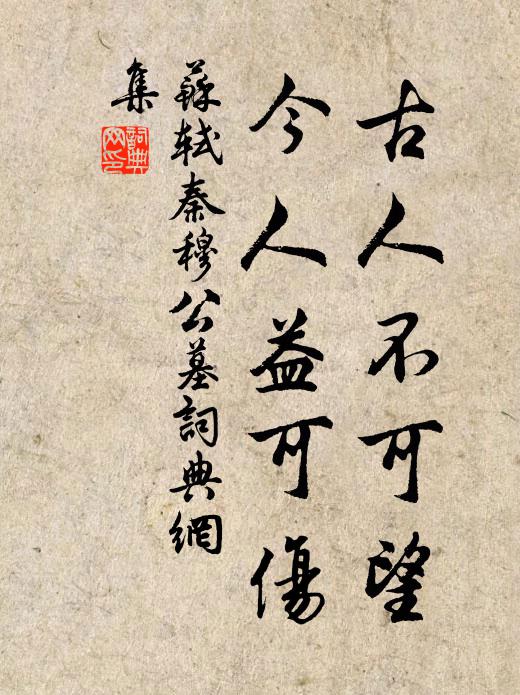 古人不可望
今人益可傷
蘇軾秦穆公墓詞典網
集
詞典
网印